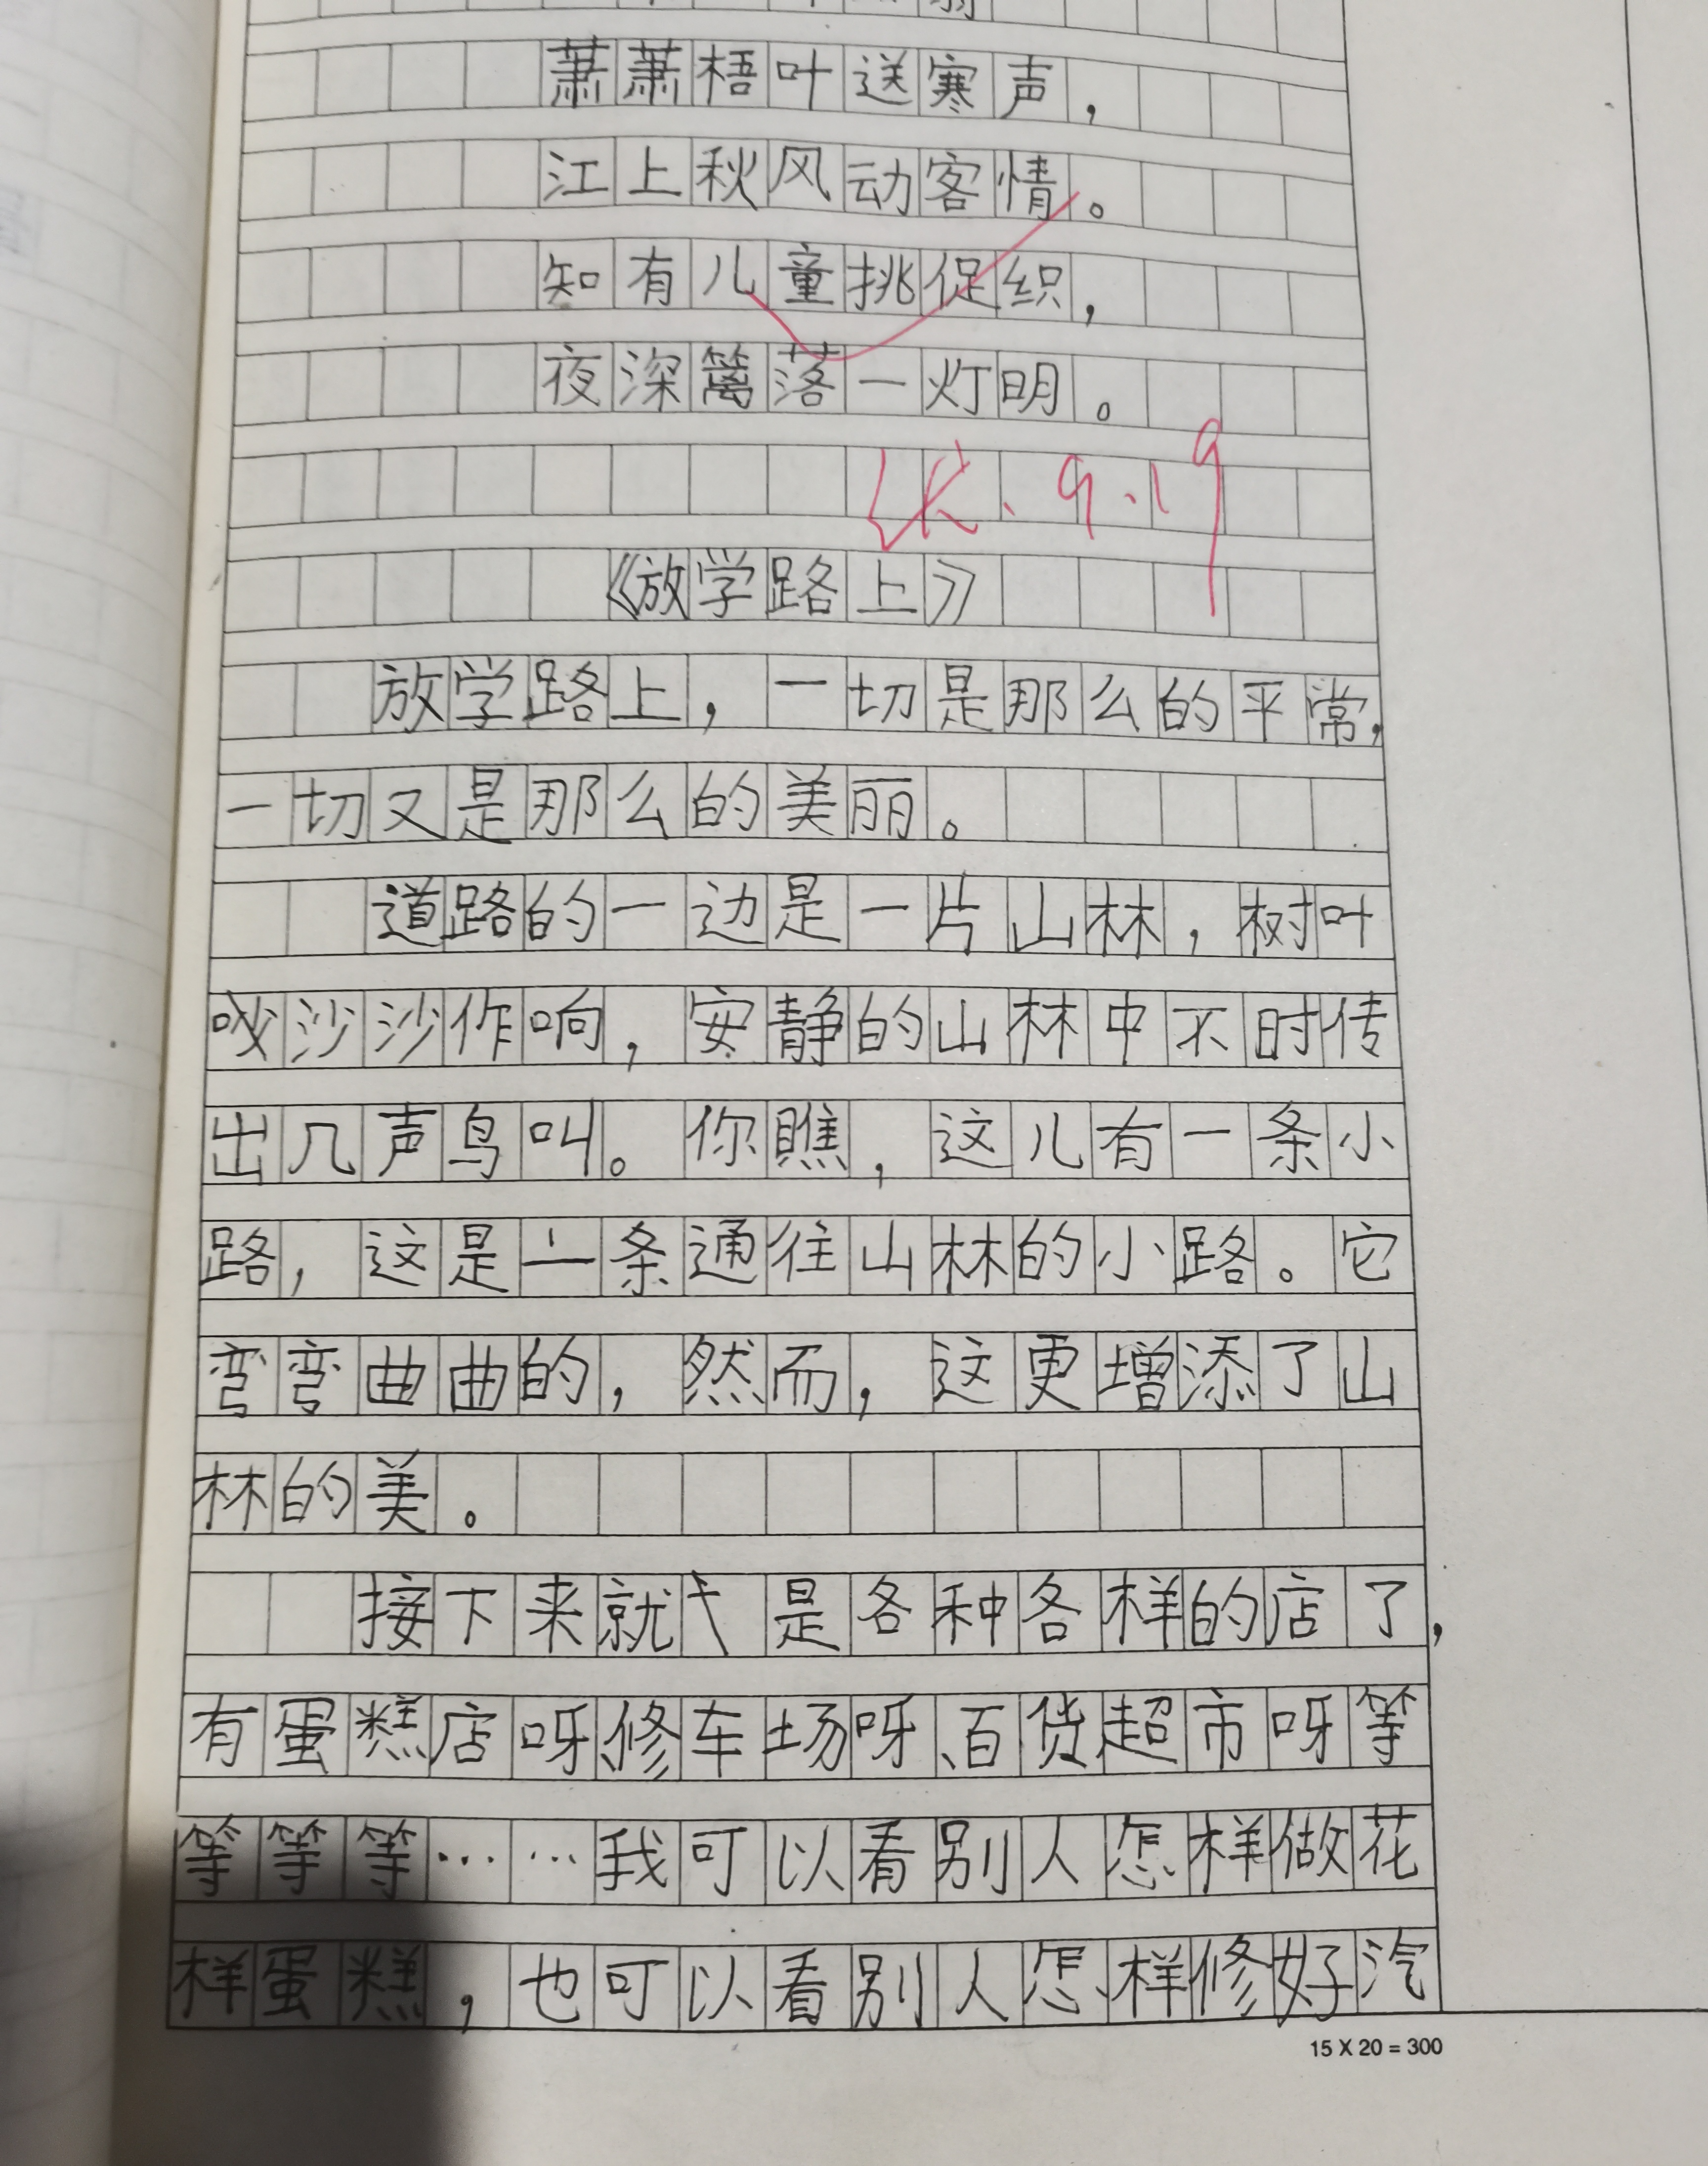 萧萧梧叶送寒声，
江上秋风动客情。
知有儿童挑促织，
夜深篱落一灯明。
9.19
《放学路上》
放学路上，一切是那么的平常，
一切又是那么的美丽。
道路的一边是一片山林，树叶
沙沙作响，安静的山林中不时传
出几声鸟叫。你瞧，这儿有一条小
路，这是一条通往山林的小路。它
弯弯曲曲的，然而，这更增添了山
林的美。
接下来就是各种各样的店了，
有蛋糕店呀、修车场呀、百货超市呀等
等等等……我可以看别人怎样做花
样蛋糕，也可以看别人怎样修好汽
15 X 20 = 300